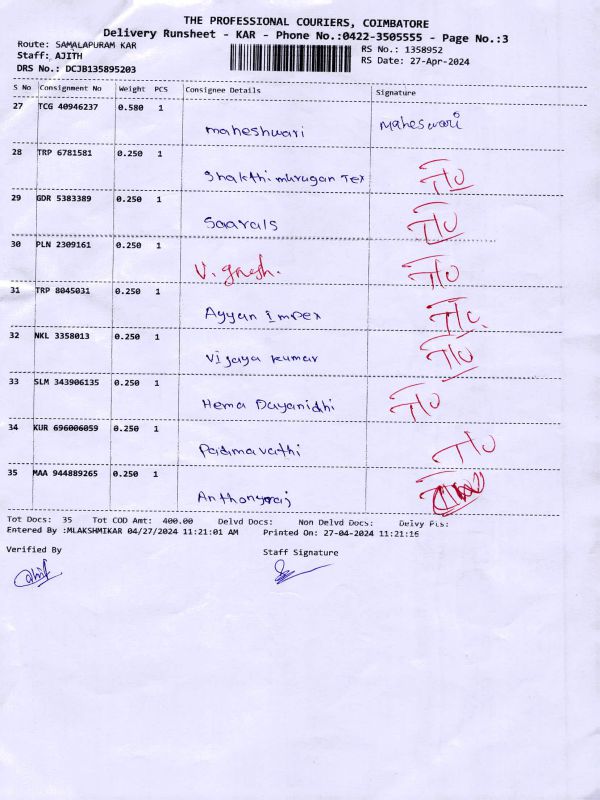 THE PROFESSIONAL COURIERS, COIMBATORE
Delivery Runsheet - KAR - Phone No.:0422-3505555 - Page No.:3
Route: SAMALAPURAM KAR
RS No.: 1358952
Staff: AJITH
RS Date: 27-Apr-2024
DRS No.: DCJB135895203
S No Consignment No Weight PCS Consignee Details Signature
27 TCG 40946237 0.580 1
maheshwari Maheswari
28 TRP 6781581 0.250 1
Shakthi murugan Tex T/O
29 GDR 5383389 0.250 1
Saarals T/O
30 PLN 2309161 0.250 1
V. T/O
31 TRP 8045031 0.250 1
Ayyan impex T/O
32 NKL 3358013 0.250 1
Vijaya kumar T/O
33 SLM 343906135 0.250 1
Hema Dayanidhi T/O
34 KUR 696006059 0.250 1
Padmavathi T/O
35 MAA 944889265 0.250 1
Anthonyraj
Tot Docs: 35 Tot COD Amt: 400.00 Delvd Docs: Non Delvd Docs: Delvy Pls:
Entered By :MLAKSHMIKAR 04/27/2024 11:21:01 AM Printed On: 27-04-2024 11:21:16
Verified By Staff Signature